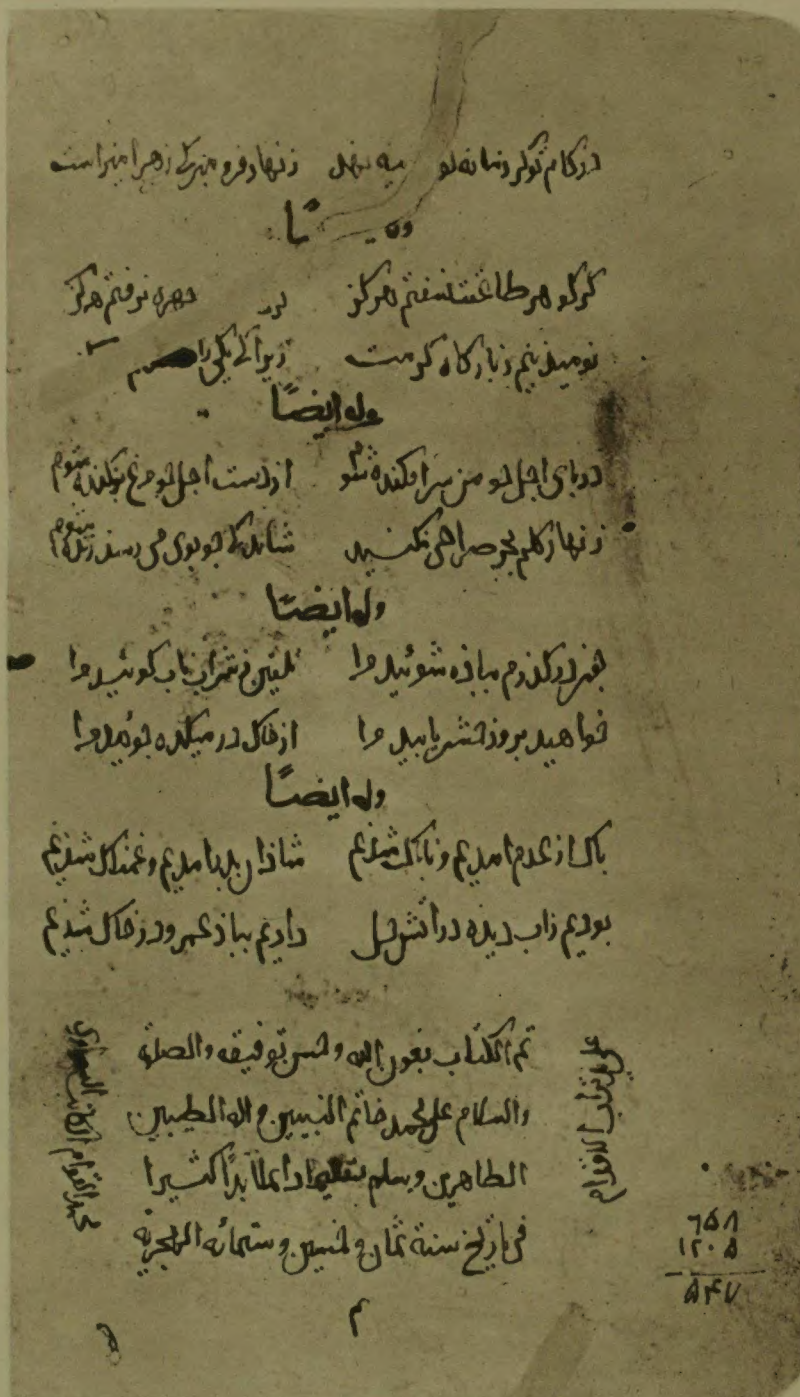 در کام تو گر زمانه لو ... نهد زنهار فرو مبر که زهر امیز است
وله ایضا
گر گوهر طاعتت نسفتم هرگز ... چهره نرفتم هرگز
نومید نیم ز بارگاه کرمت زیرا که یکی را
وله ایضا
در پای اجل چو من سرافکنده شوم از دست اجل چو مرغ برکنده شوم
زنهار گلم بجز صراحی نکنید شاید که چو بوی می رسد زنده شوم
وله ایضا
چون درگذرم بباده شوئید مرا تلقین ز شراب ناب گوئید مرا
خواهید بروز حشر یابید مرا از خاک در میکده جوئید مرا
وله ایضا
پاک از عدم امدیم و ناپاک شدیم شاذان بدر امدیم و غمناک شدیم
بودیم زاب دیده در اتش دل دادیم بباد عمر و در خاک شدیم
تم الکتاب بعون الله وحسن توفیقه والصلوة
والسلام علی محمد خاتم النبیین واله الطیبین
الطاهرین وسلم تسلیما دائما ابدا کثیرا
فی تاریخ سنة ثمان وخمسین وستمائه الهجریه
م
علی ید تراب الاقدام
محمد القوام
۶۵۸
۱۲۰۵
۵۴۷